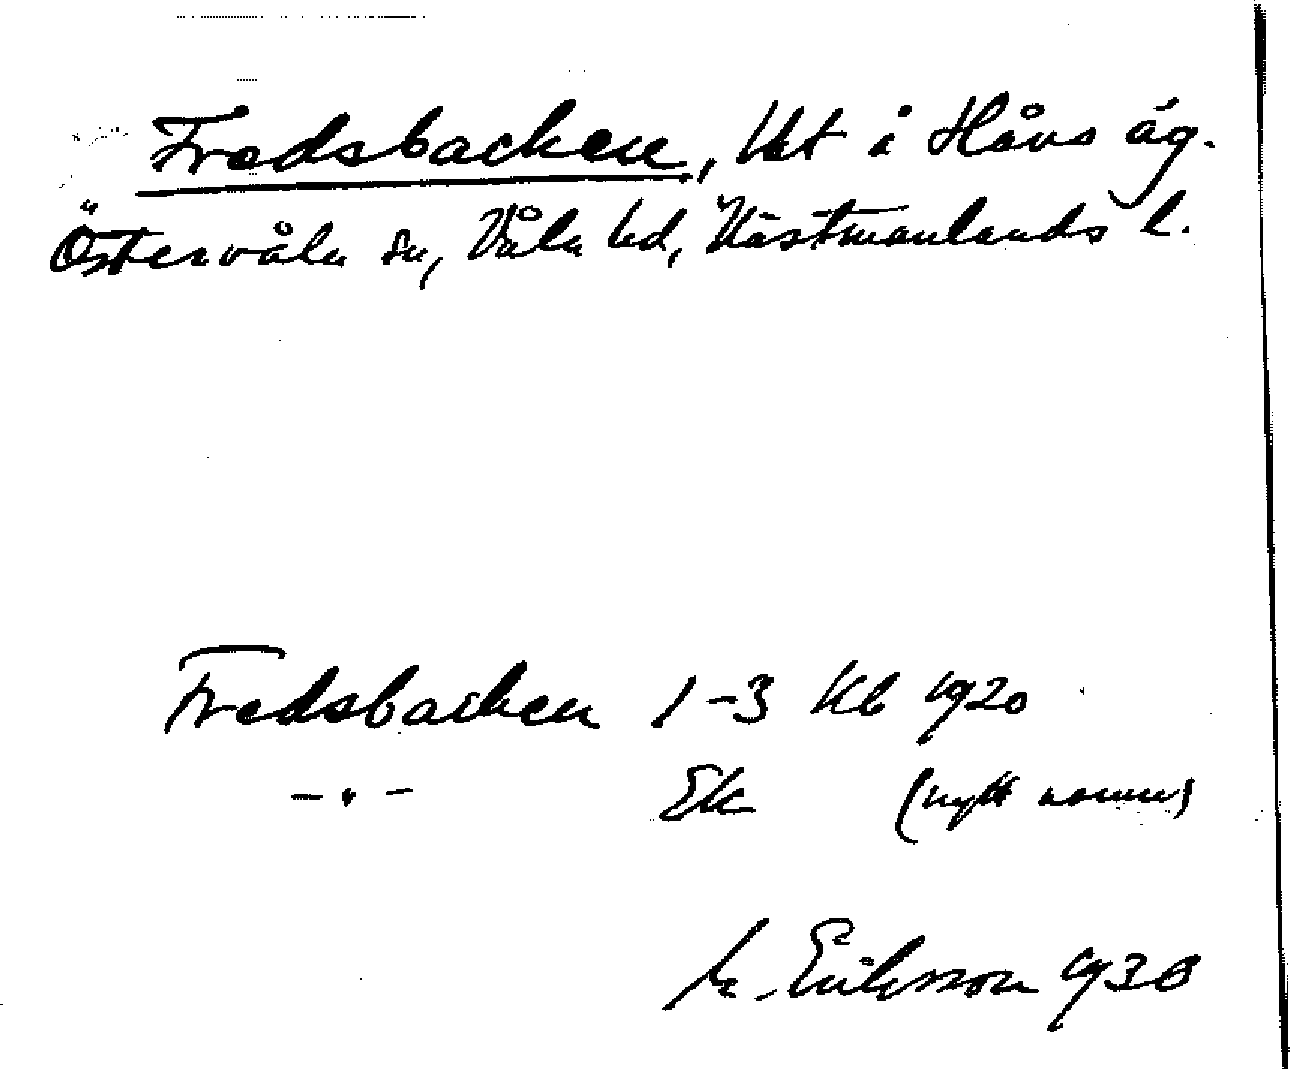 Fredsbacken, lht i Håvs äg.
Östervåla sn, Våla hd, Västmanlands l.
Fredsbacken 1-3 Kb 1920
- " - Ek (nytt namn)
M. Eriksson 1938